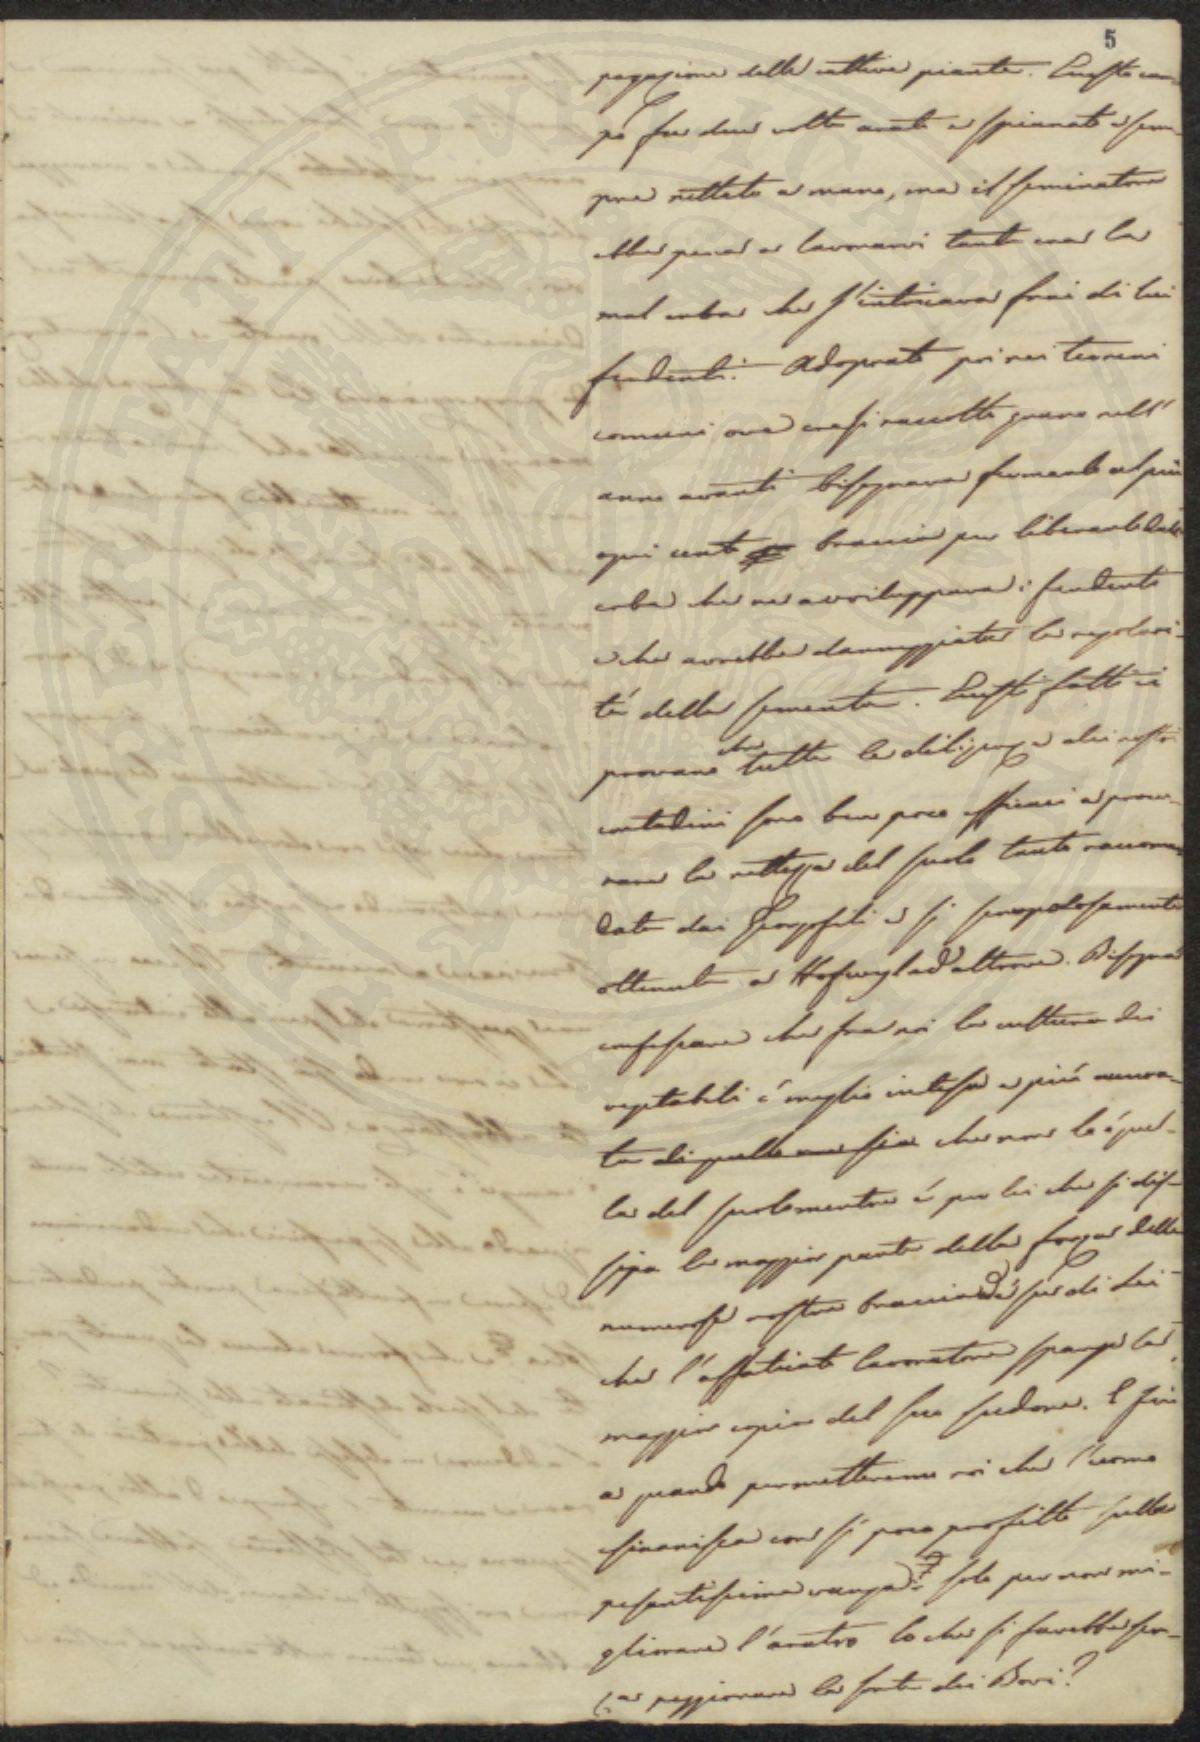 5
pagazione delle cattive piante. Questo cam-
po fu due volte arato e spianato e sem-
pre nettato a mano, ma il seminatore
ebbe pena a lavorarvi tanta era la
mal erba che s'intricava frai di lui
fendenti. Adoprato poi nei terreni
comuni ove erasi raccolto grano nell'
anno avanti bisognava fermarlo al più
ogni cento braccia per liberarlo dall'
erba che ne avviluppava i fendenti
e che avrebbe danneggiata la regolari-
tà della sementa. Questi fatti ci
provano che tutta la diligenza dei nostri
contadini sono ben poco efficaci a procu-
rare la nettezza del suolo tanto raccoman
data dai Georgofili e sì scrupolosamente
ottenuta a Hofwyl ad altrove. Bisogna
confessare che fra noi la cultura dei
vegetabili é meglio intesa e più accura-
ta di quello che non lo é quel-
la del suolo mentre é per lei che si dis-
sipa la maggior parte della forza delle
numerose nostre braccia ed é su di Lei
che l'affaticato lavoratore sparge la
maggior copia del suo sudore. E fino
a quando permetteremo noi che l'uomo
si rifinisca con sì poco profitto sulla
pesantissima vanga? solo per non mi-
gliorare l'aratro lo che si farebbe sen-
za peggiorare la sorte dei Bovi?